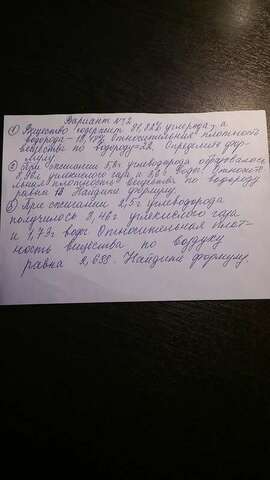 Вариант №2
① Вещество содержит 81,82% углерода, а
водорода – 18,18%. Относительная плотность
вещества по водороду=22. Определите фор-
мулу.
② При сжигании углеводорода образовалось
углекислого газа и воды. Относите-
льная плотность вещества по водороду
равна Найдите формулу.
③ При сжигании 2,5г углеводорода
получилось 8,46г углекислого газа
и 1,73г воды Относительная плот-
ность вещества по воздуху
равна 2,698. Найдите формулу